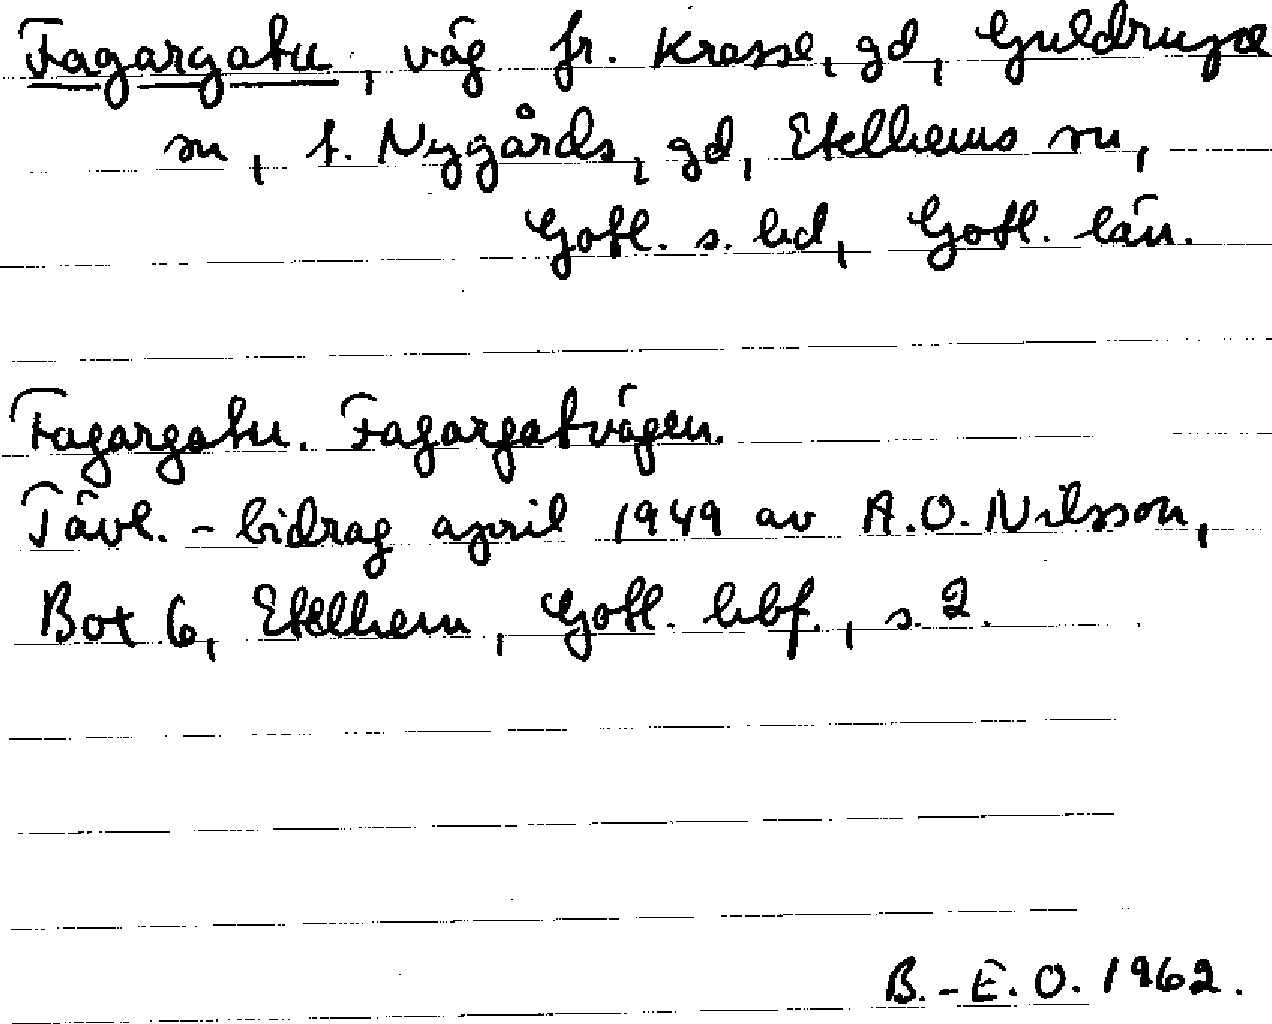 Fagargatu, väg fr. Krasse, gd, Guldrupe
sn, t. Nygårds, gd, Etelhems sn,
Gotl. s. hd, Gotl. län.
Fagargatu. Fagargatvägen.
Tävl.-bidrag april 1949 av A.O. Nilsson,
Box 6, Etelhem, Gotl. hbf., s. 2.
B.-E. O. 1962.